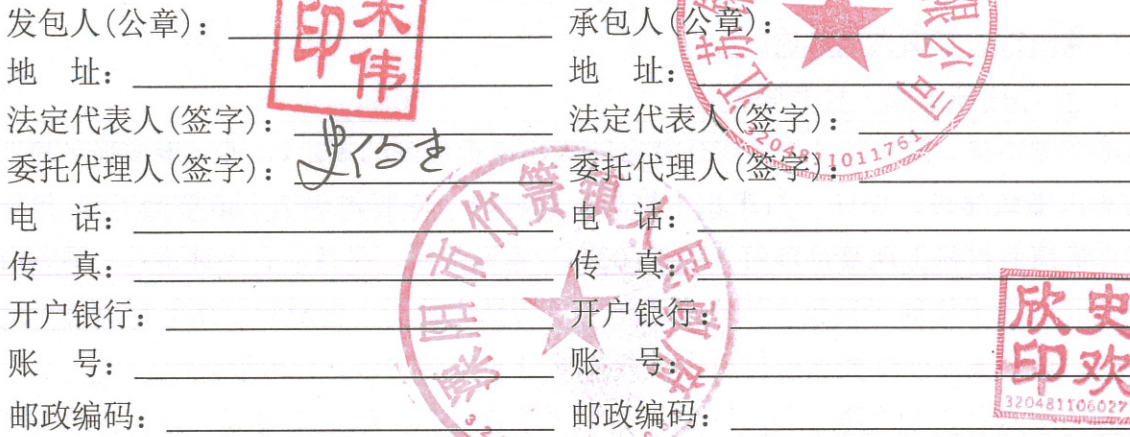 发包人(公章):
地 址:
法定代表人(签字):
委托代理人(签字):
电 话:
传 真:
开户银行:
账 号:
邮政编码:
承包人(公章):
地 址:
法定代表人(签字):
委托代理人(签字):
电 话:
传 真:
开户银行:
账 号:
邮政编码:
伟
印
溧阳市竹箦镇人民政府
江苏
限公司
3204811011761
史欢
欣印
320481106027